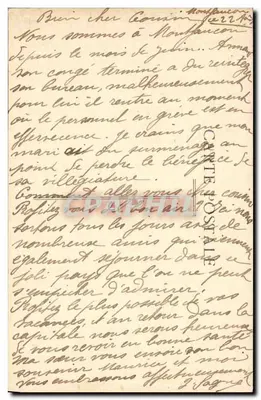 Montfaucon
ce 22 A
Bien cher Cousin
Nous sommes à Montfaucon
depuis le mois de juin. Armand
son congé terminé a du rentrer
son bureau, malheureusement
pour lui il rentre au moment
où le personnel en grève est en
effervescence. Je crains que mon
mari ait du surmenage au
point de perdre le bénéfice de
sa villégiature.
Comment allez vous cher cousin
Profitez vous
sortons tous les jours avec de
nombreuse amis qui viennent
également séjourner dans ce
joli pays que l'on ne peut
s'empêcher d'admirer.
Profitez le plus possible de vos
vacances, et au retour dans la
capitale nous serons heureux
de vous revoir en bonne santé
ma sœur vous envoie son bon
souvenir Maurice et moi
vous embrassons affectueusement
CARTE POSTALE